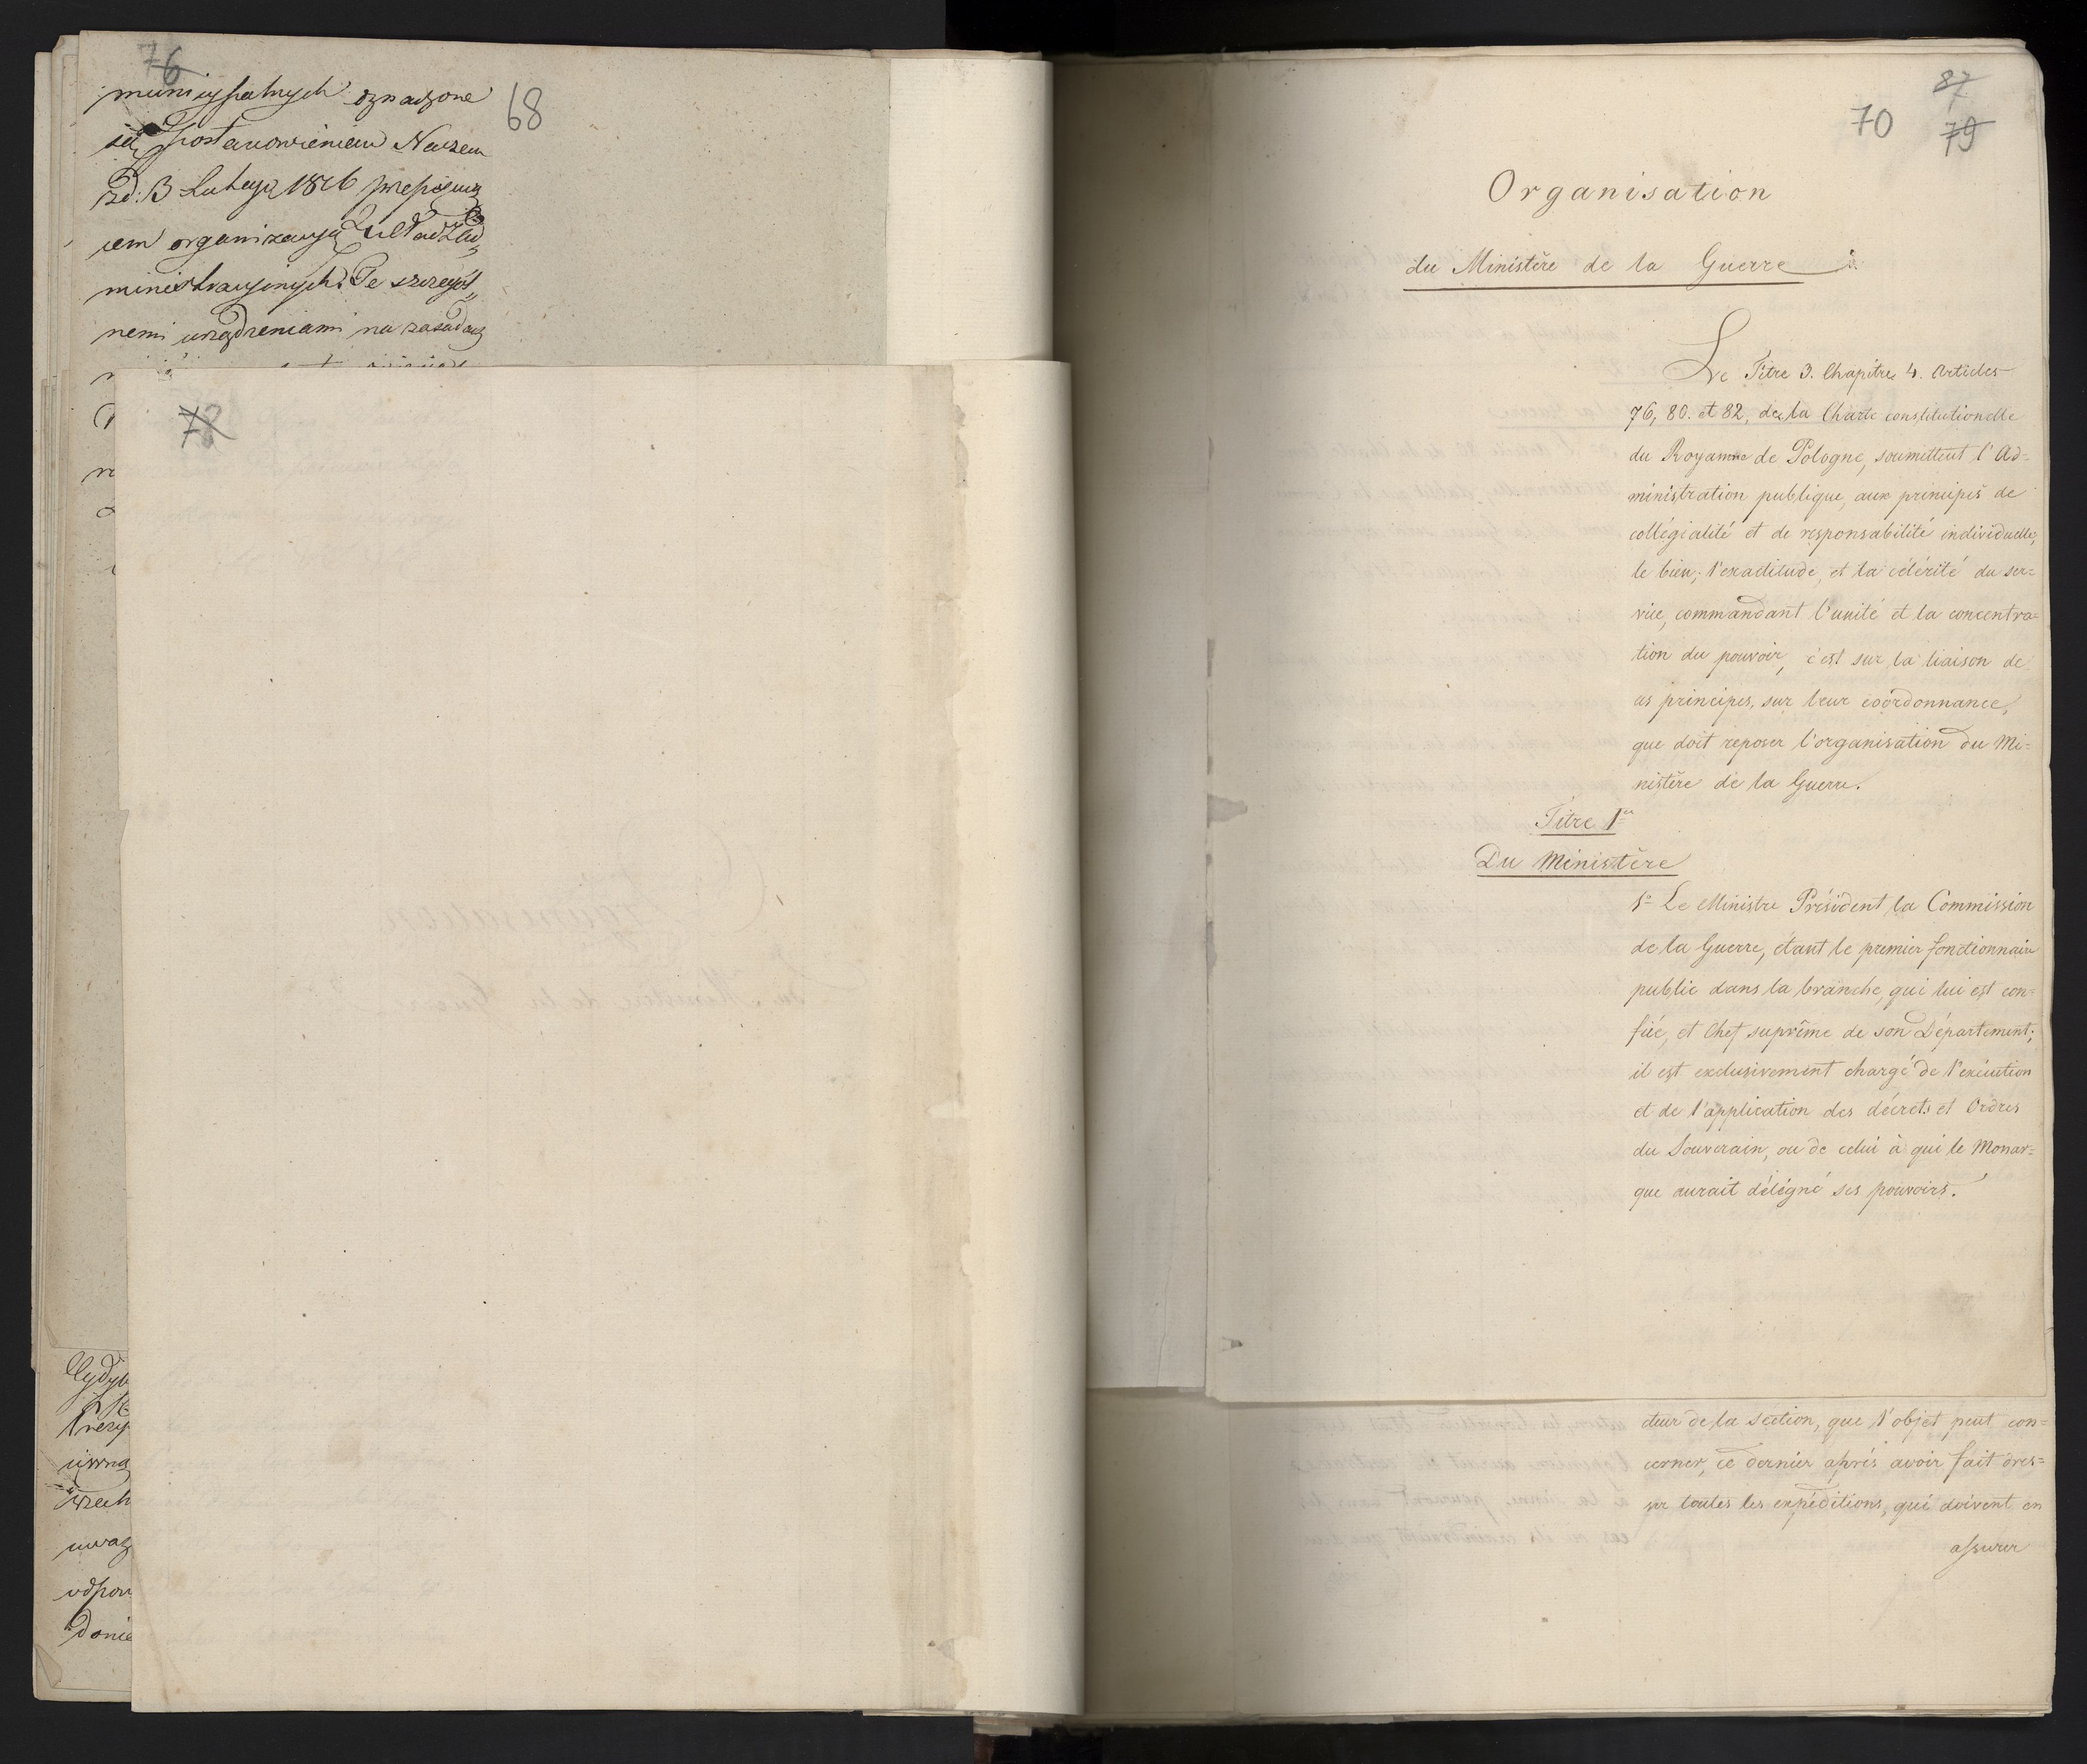 76
municypalnych oznaczone
są postanowieniem Naszem
zd: 3 Lutego 1816 przepisują
cem organizacyą Władz Ad
ministracyinych. Te szczegół
nemi urządzeniami na zasadach
68
78
uwag
odpow
donie
87
70 79
Organisation
du Ministère de la Guerre
Le Titre 3. Chapitre 4. Articles
76, 80. et 82, de la Charte constitutionelle
du Royaume de Pologne, soumettent l'Ad=
ministration publique, aux principes de
collégialité et de responsabilité individuelle;
le bien, l'exactitude, et la célérité du ser=
vice, commandant l'unité et la concentra=
tion du pouvoir, c'est sur la liaison de
ces principes, sur leur coordonnance,
que doit reposer l'organisation du Mi=
nistère de la Guerre.
Titre 1er
Du Ministère
1º Le Ministre Président la Commission
de la Guerre, étant le premier fonctionnaire
public dans la branche, qui lui est con=
fiée, et Chef suprême de son Département;
il est exclusivement chargé de l'exécution
et de l'application des décrets et Ordres
du Souverain, ou de celui à qui le Monar=
que aurait délégué ses pouvoirs.
cteur de la section, que l'objet peut con=
cerner, ce dernier après avoir fait dres=
ser toutes les expéditions, qui doivent en
assurer